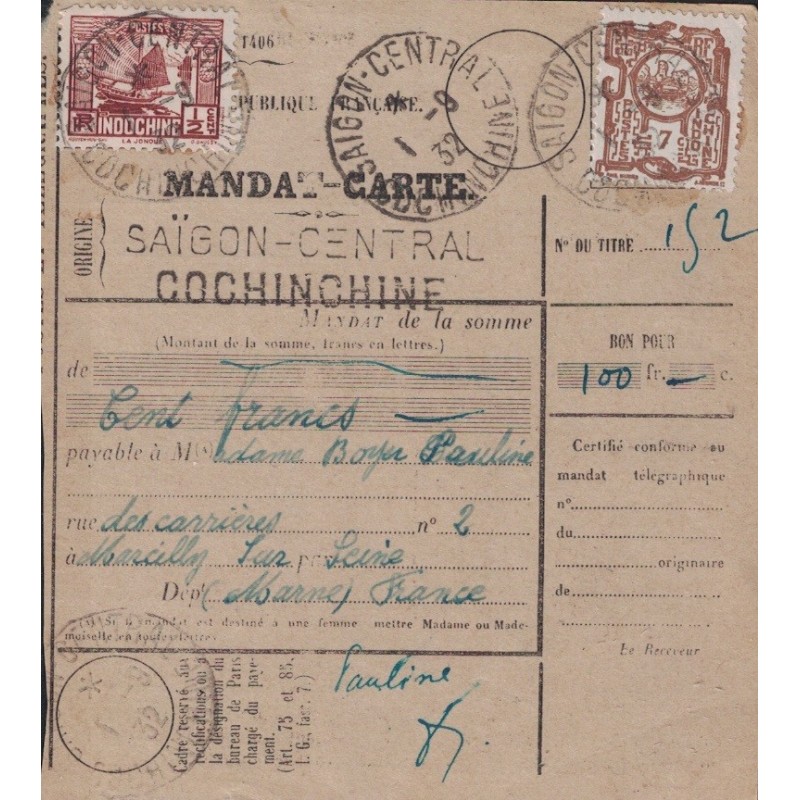 POSTES
INDOCHINE
1/2 CENT
LA JONQUE
1406
RÉPUBLIQUE FRANÇAISE.
SAIGON-CENTRAL
1 -9
32
COCHINCHINE
RF
POSTES
7
INDOCHINE
MANDAT-CARTE.
ORIGINE
SAÏGON-CENTRAL
COCHINCHINE
N° DU TITRE 152
MANDAT de la somme
(Montant de la somme, francs en lettres.)
BON POUR
100 fr. — c.
de
Cent francs —
payable à M Madame Boyer Pauline
rue des carrières n° 2
à Marcilly Sur Seine
Dép^t (Marne) France
(1) Si le mandat est destiné à une femme mettre Madame ou Made-
moiselle en toutes lettres.
Certifié conforme au
mandat télégraphique
n°
du
originaire
de
Le Receveur
Cadre reservé aux
rectifications ou à
la désignation du
bureau de Paris
chargé du paye-
ment.
(Art. 75 et 85,
I. G., fasc. 7.)
Pauline
1 -9
32